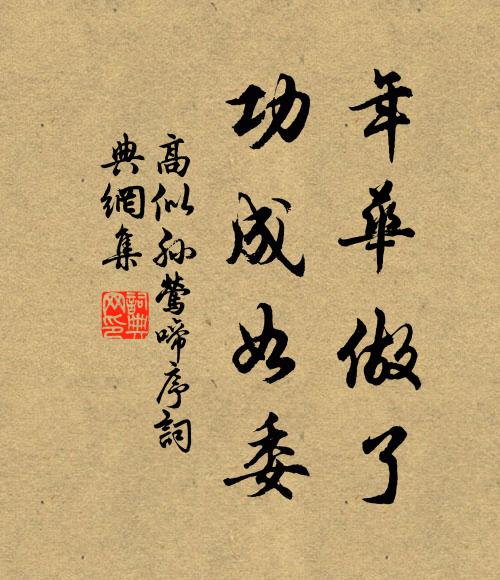 年華做了
功成如委
高似孫鶯啼序詞
典網集
詞典網印